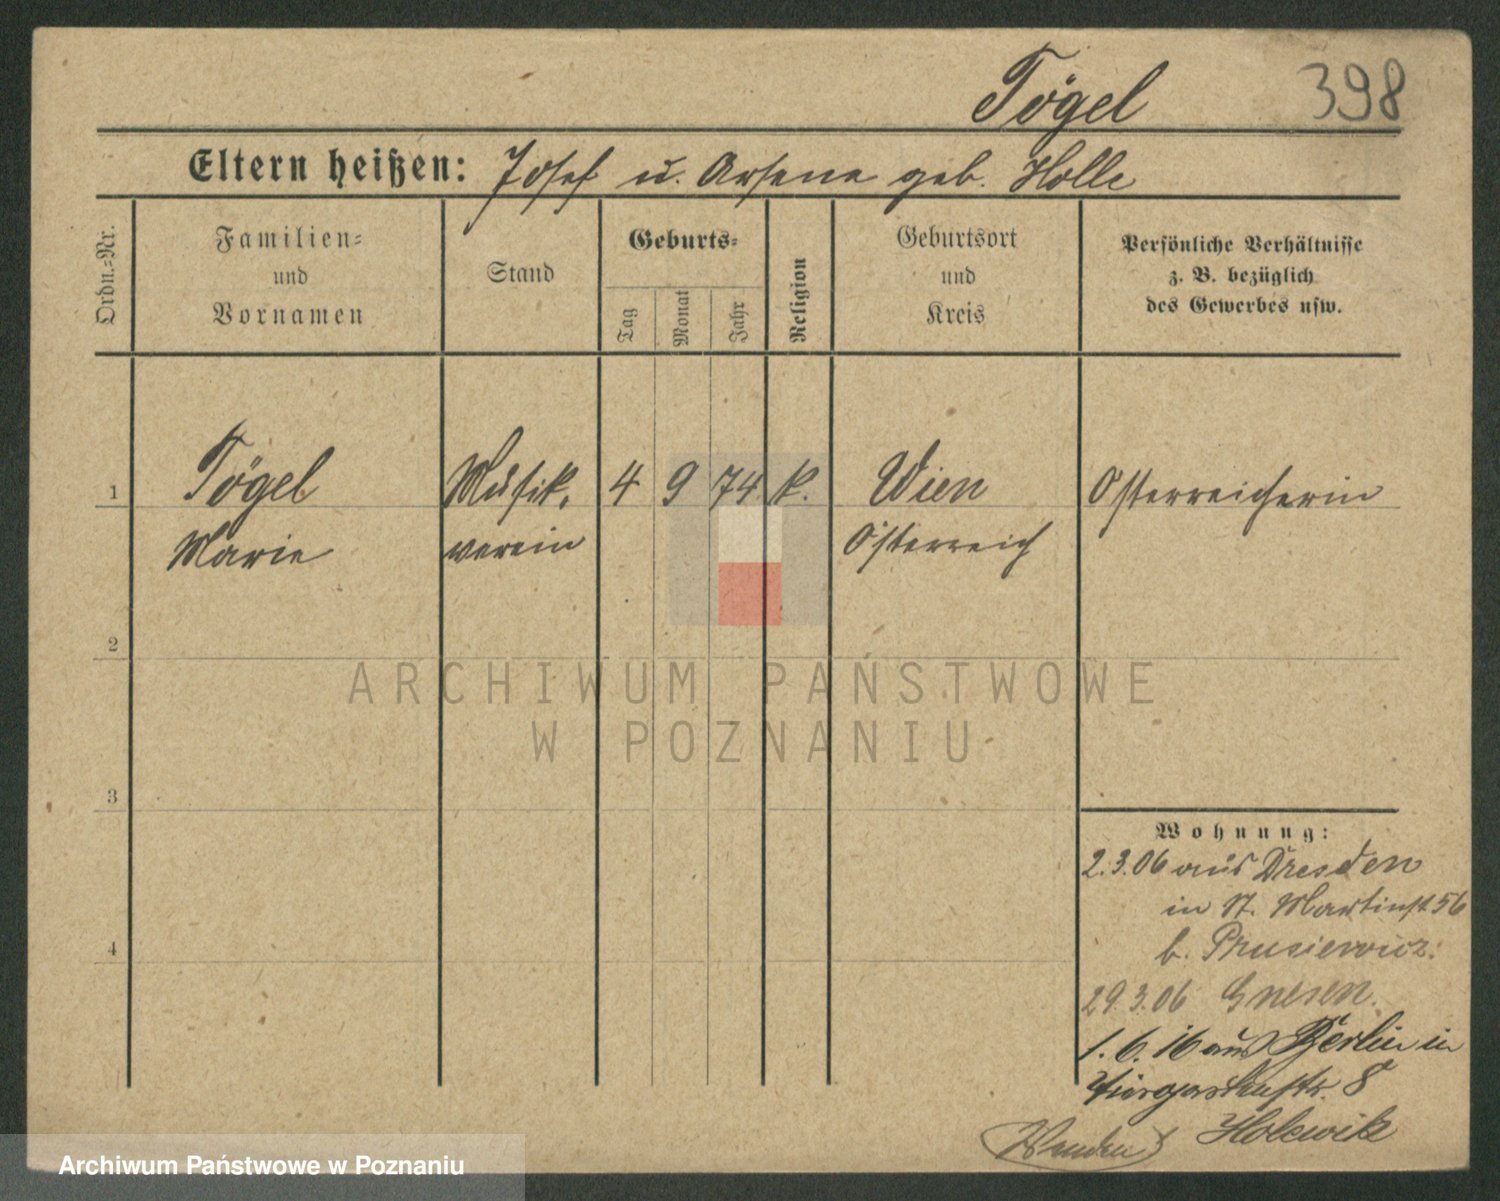 Tögel 398
Eltern heißen: Josef u. Arsena geb. Holle
Ordn.-Nr.
Familien-
und
Vornamen
Stand
Geburts-
Tag
Monat
Jahr
Religion
Geburtsort
und
Kreis
Persönliche Verhältnisse
z. B. bezüglich
des Gewerbes usw.
1 Tögel Musik. 4 9 74 k. Wien Österreicherin
Marie verein Österreich
2
ARCHIWUM PAŃSTWOWE
W POZNANIU
3
Wohnung:
2.3.06 aus Dresden
in St. Martinst 56
b. Prusiewicz.
4
29.3.06 Gnesen.
1.6.16 aus Berlin in
Tiergartenstr. 8
Archiwum Państwowe w Poznaniu